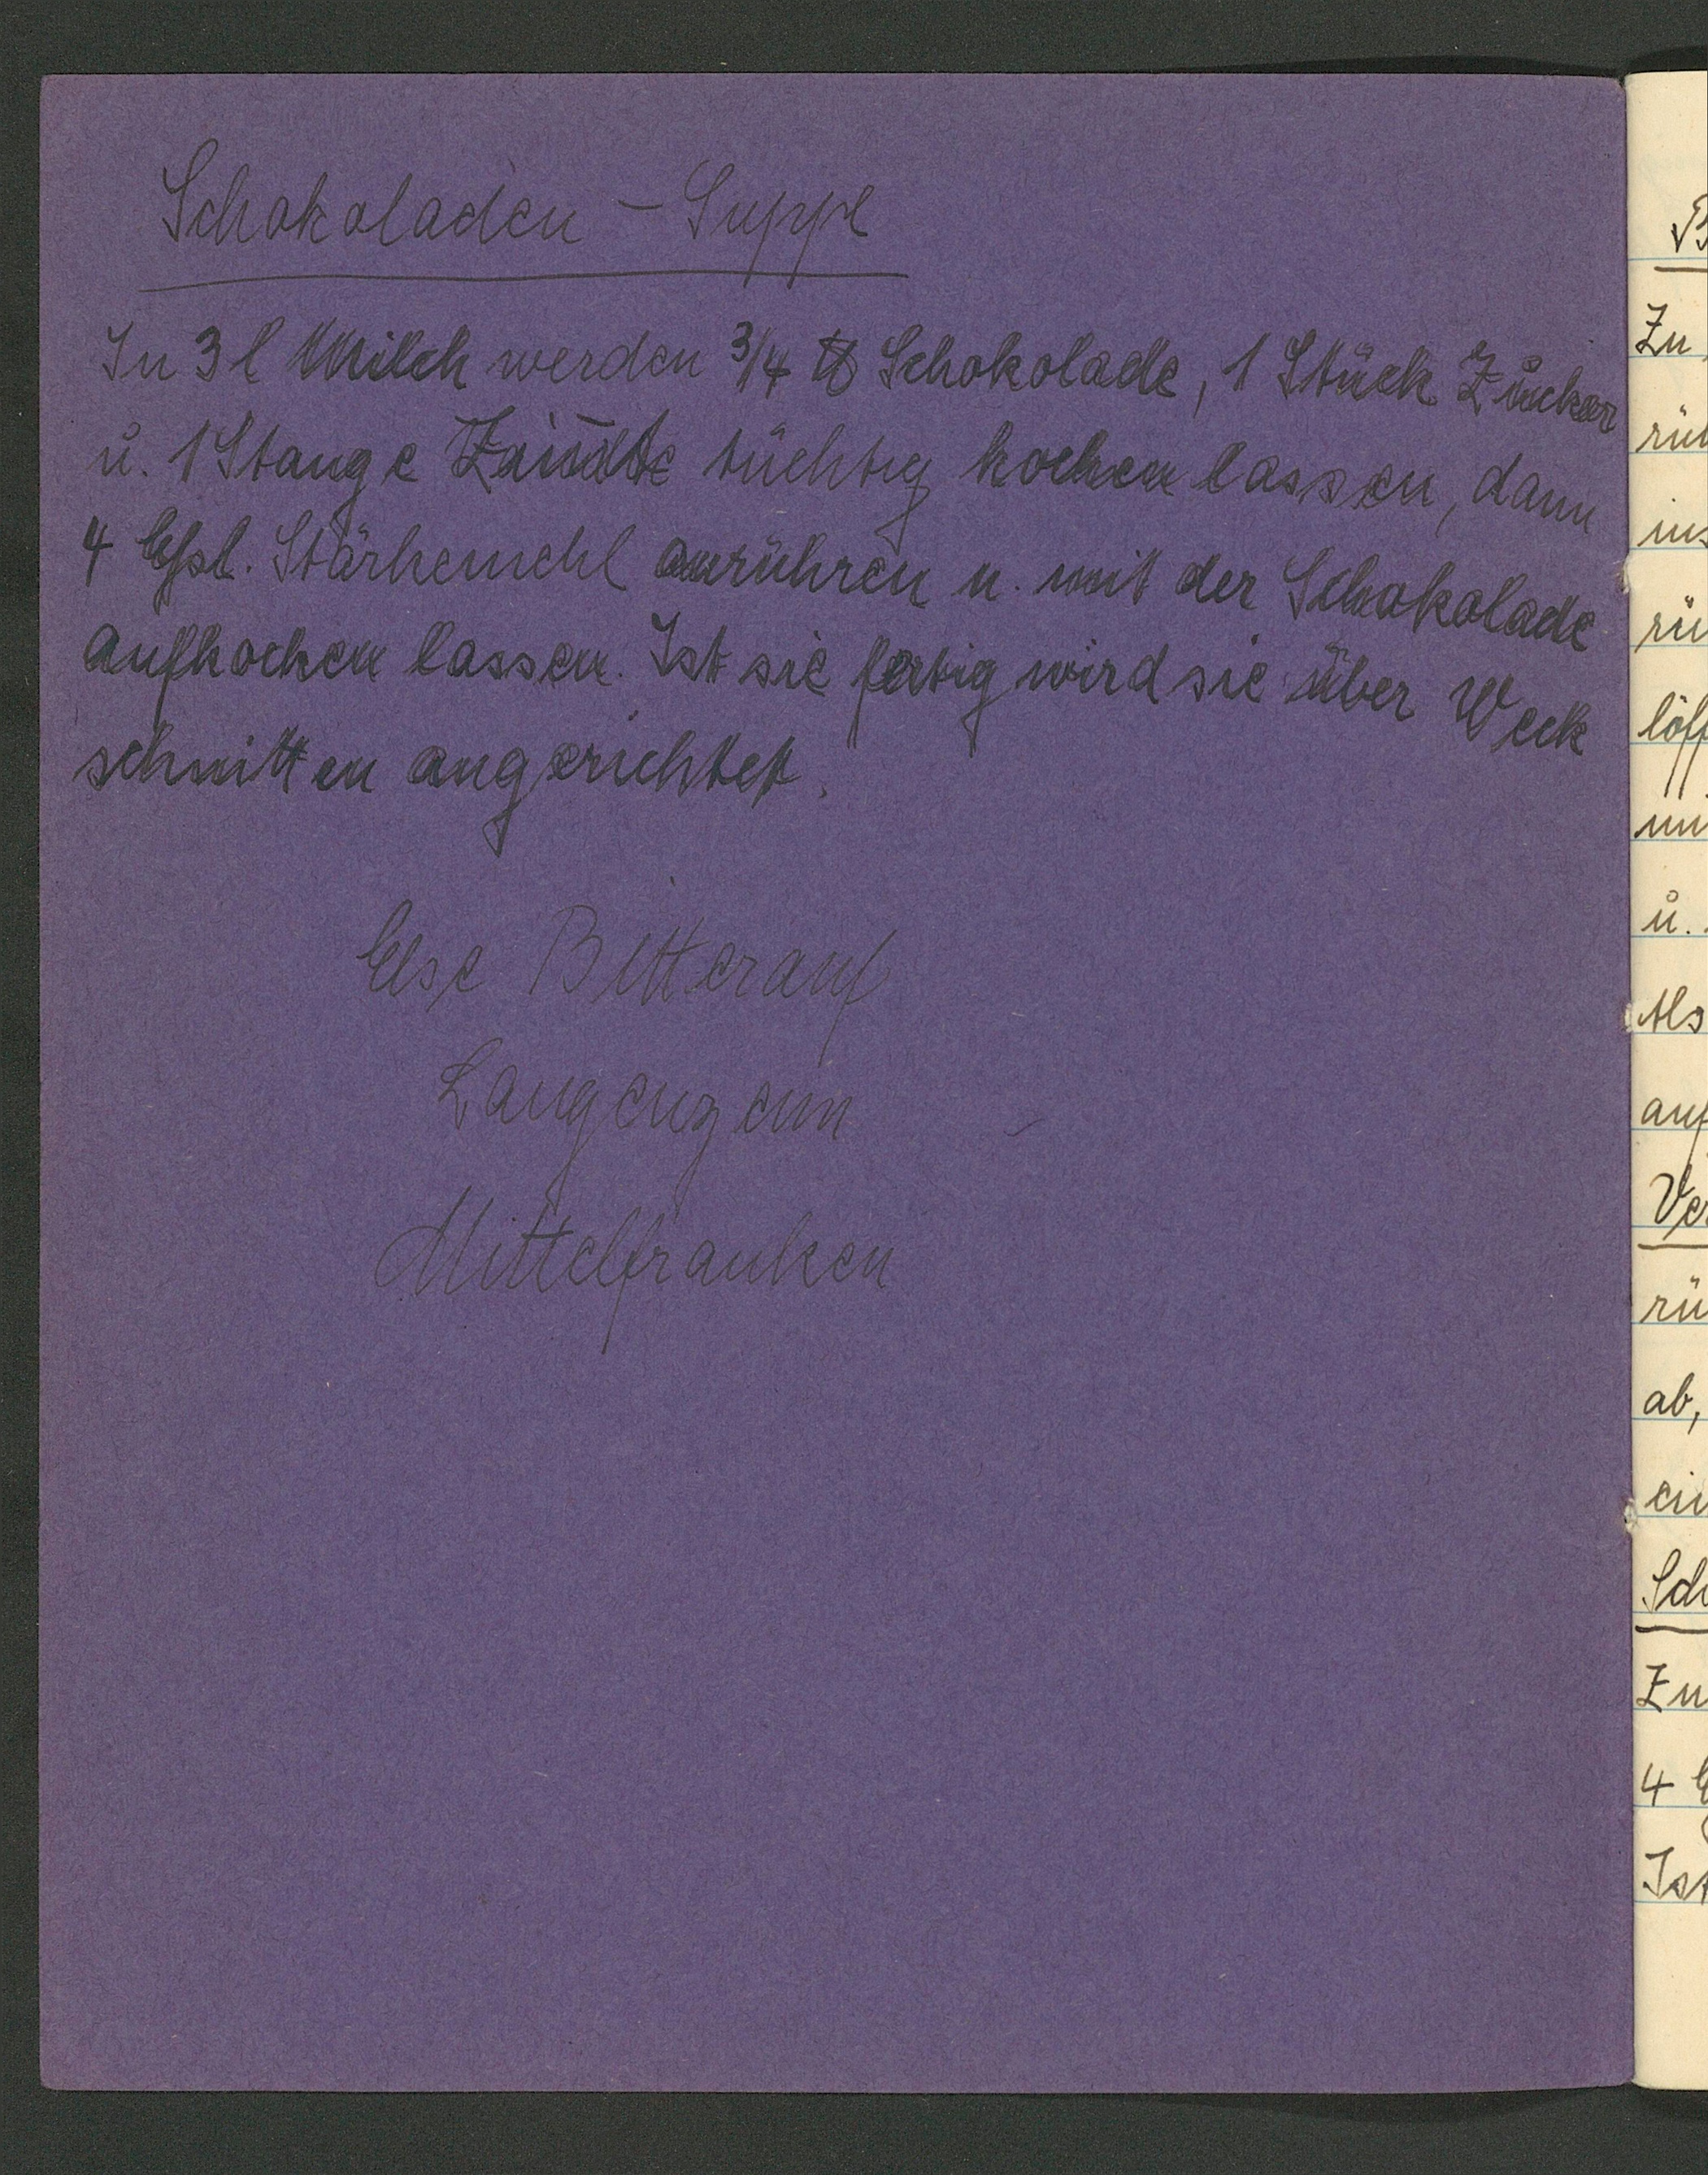 Schokoladen - Suppe
In 3 l Milch werden 3/4 ℔ Schokolade, 1 Stück Zucker
u. 1 Stange tüchtig kochen lassen, dann
4 Essl. Stärkemehl anrühren u. mit der Schokolade
aufkochen lassen. Ist sie fertig wird sie über Weck
schnitten angerichtet.
Else Bitterauf
Langenzenn
Mittelfranken
Zu
rü
ins
rü
löff
u.
Als
auf
Ve
rü
ab,
ein
Sch
Zu
4
Ist